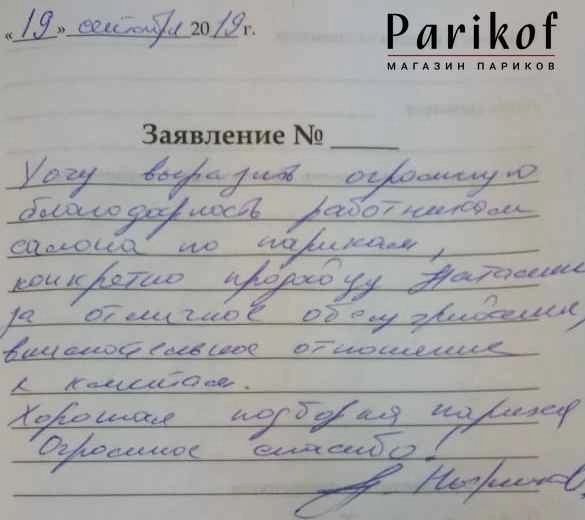 Parikof
МАГАЗИН ПАРИКОВ
«19» сентября 2019 г.
Заявление №
Хочу выразить огромную
благодарность работникам
салона по парикам,
конкретно продавцу Наталии
за отличное обслуживание,
внимательное отношение
к клиентам.
Хорошая подборка париков
Огромное спасибо!